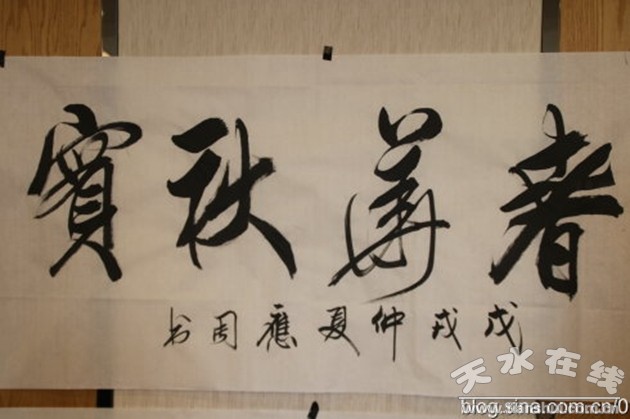 春華秋實
戊戌仲夏應周书
天水在线
blog.sina.com.cn/0